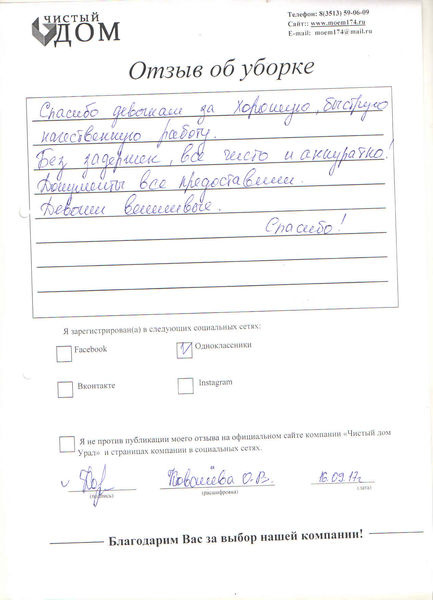 чистый
ДОМ
Телефон: 8(3513) 59-06-09
Сайт:: www.moem174.ru
E-mail: moem174@mail.ru
Отзыв об уборке
Спасибо девочкам за хорошую, быструю
качественную работу.
Без задержек, все чисто и аккуратно!
Документы все предоставили.
Девочки вежливые.
Спасибо!
Я зарегистрирован(а) в следующих социальных сетях:
Facebook
Одноклассники
Вконтакте
Instagram
Я не против публикации моего отзыва на официальном сайте компании «Чистый дом
Урал» и страницах компании в социальных сетях.
О.В. 16.09.17г
(подпись) (расшифровка) (дата)
Благодарим Вас за выбор нашей компании!